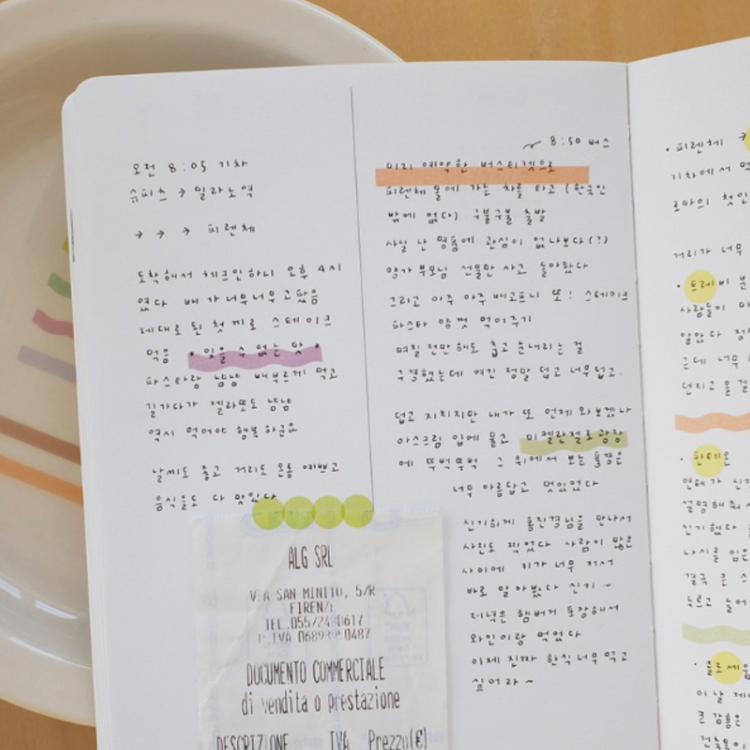 오전 8:05 기차
슈피츠 → 밀라노역
→ → → 피렌체
도착해서 체크인하니 오후 4시
였다 배가 너무너무 고팠음
제대로 된 첫끼로 스테이크
먹음 • 잊을 수 없는 맛 •
파스타랑 냠냠 배부르게 먹고
길가다가 젤라또도 냠냠
역시 먹어야 행복하군요
날씨도 좋고 거리도 온통 예쁘고
음식들도 다 맛있다
ALG SRL
VIA SAN MINITO, 5/R
FIRENZE
TEL.055/24
DOCUMENTO COMMERCIALE
di vendita o prestazione
DESCRIZIONE IVA Prezzo(€)
8:50 버스
미리 예약한 버스티켓으로
피렌체 몰에 가는 차를 타고 (한국인
밖에 없다) 구불구불 출발
사실 난 명품에 관심이 없나보다(?)
양가 부모님 선물만 사고 돌아왔다
그리고 아주 아주 배고프니 또! 스테이크
파스타 양껏 먹어주기
며칠 전만해도 춥고 눈내리는 걸
구경했는데 여긴 정말 덥고 너무 덥고.
덥고 지치지만 내가 또 언제 와보겠나
아스크림 입에 물고 미켈란젤로 광장
에 뚜벅뚜벅 그 위에서 보는 풍경은
너무 아름답고 멋있었다
신기하게 만나서
사진도 찍었다 사람이 많은
사이에 키가 너무 커서
바로 알아봤다 신기~
저녁은 햄버거 포장해서
와인이랑 먹었다
이제 진짜 한식 너무 먹고
싶어라~
• 피렌체 →
기차에서
로마의 첫인
거리가 너무
• 트레비 분
사람들이
알았다
근데 너무
던지고
• 판테온
설명해줘
신기했다
나시를 입은
결국
두르고 들어
• 콜로세움
이날